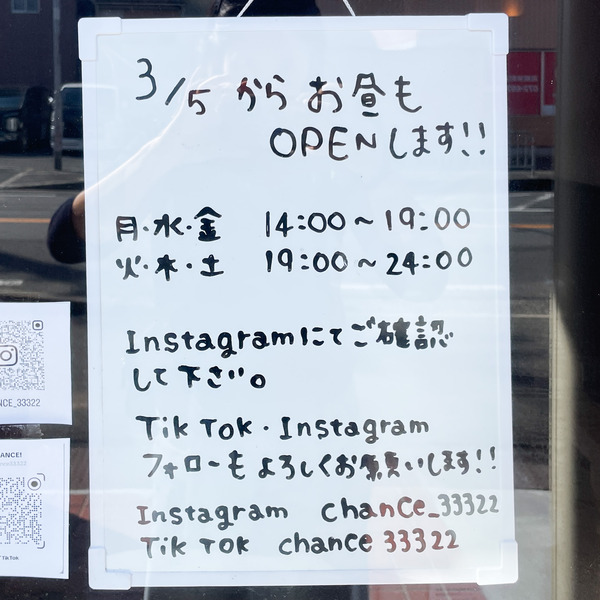 3/5 からお昼も
OPENします!!
月・水・金 14:00～19:00
火・木・土 19:00～24:00
Instagramにてご確認
して下さい。
TikTok・Instagram
フォローもよろしくお願いします!!
Instagram chance_33322
TikTok chance33322
NCE_33322
ANCE!
TikTok